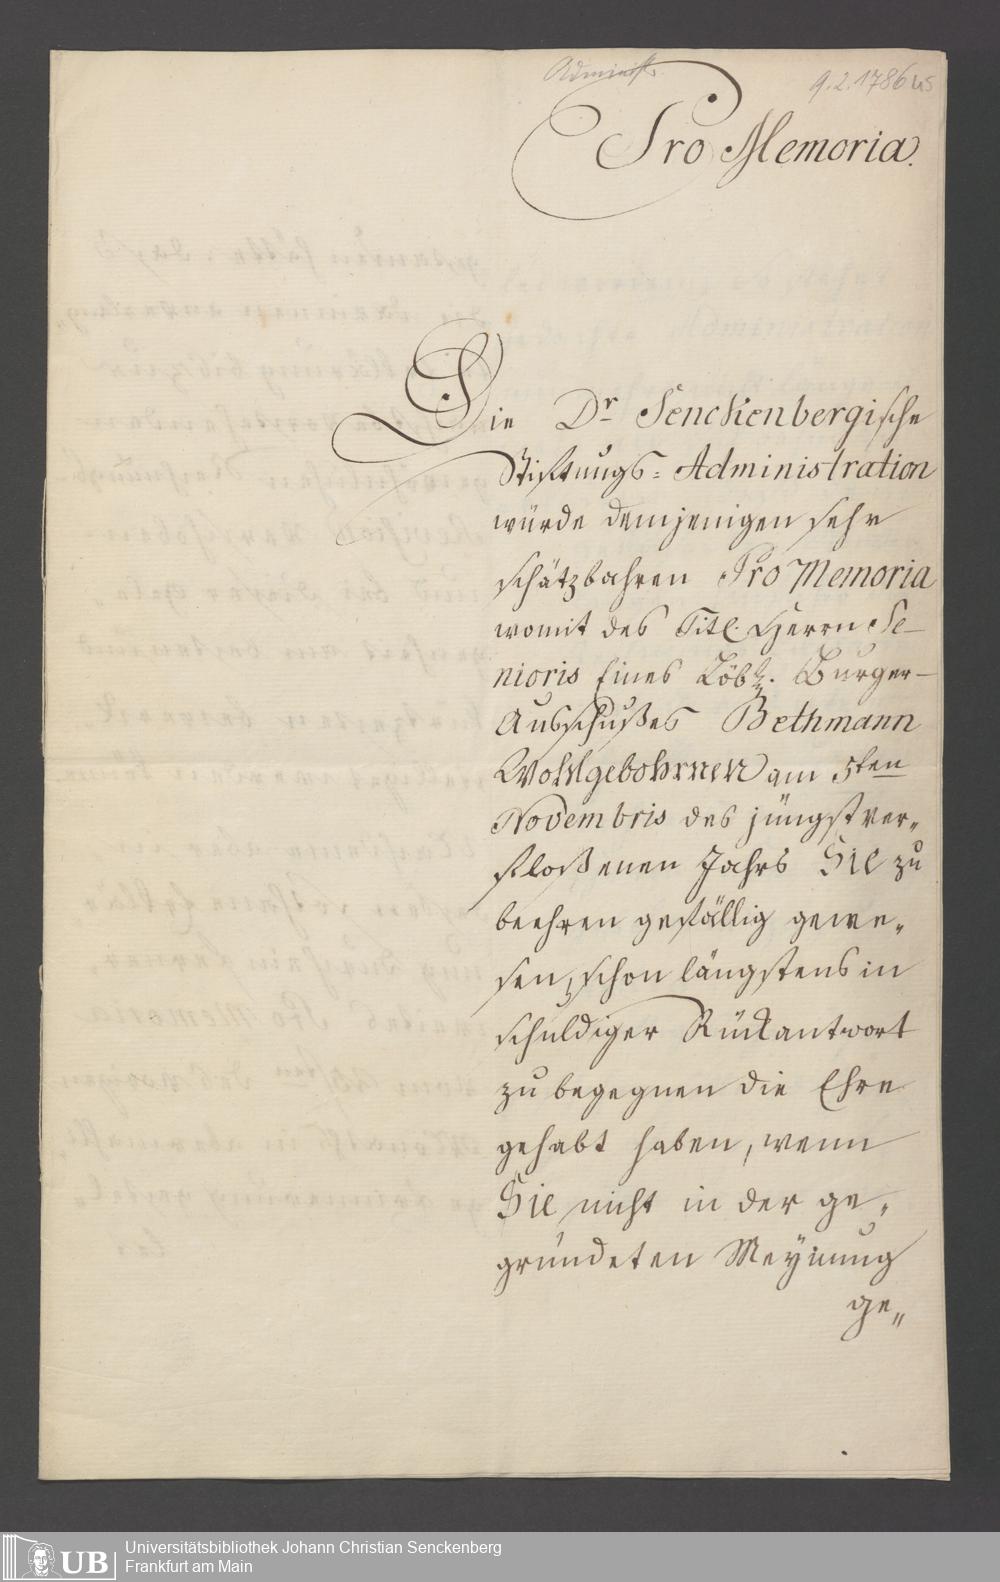 Administr.
9.2.1786 us
Pro Memoria.
Die Dr Senckenbergische
Stiftungs= Administration
würde demjenigen sehr
schätzbahren Pro Memoria
womit des Titl. Herrn Se-
nioris Eines Löbl. Burger-
Ausschußes Bethmann
Wohlgebohrnen am 5ten
Novembris des jüngst ver„
floßenen Jahrs Sie zu
beehren gefällig gewe„
sen, schon längstens in
schuldiger Rückantwort
zu begegnen die Ehre
gehabt haben, wenn
Sie nicht in der ge„
gründeten Meÿnung
ge„
UB
Universitätsbibliothek Johann Christian Senckenberg
Frankfurt am Main